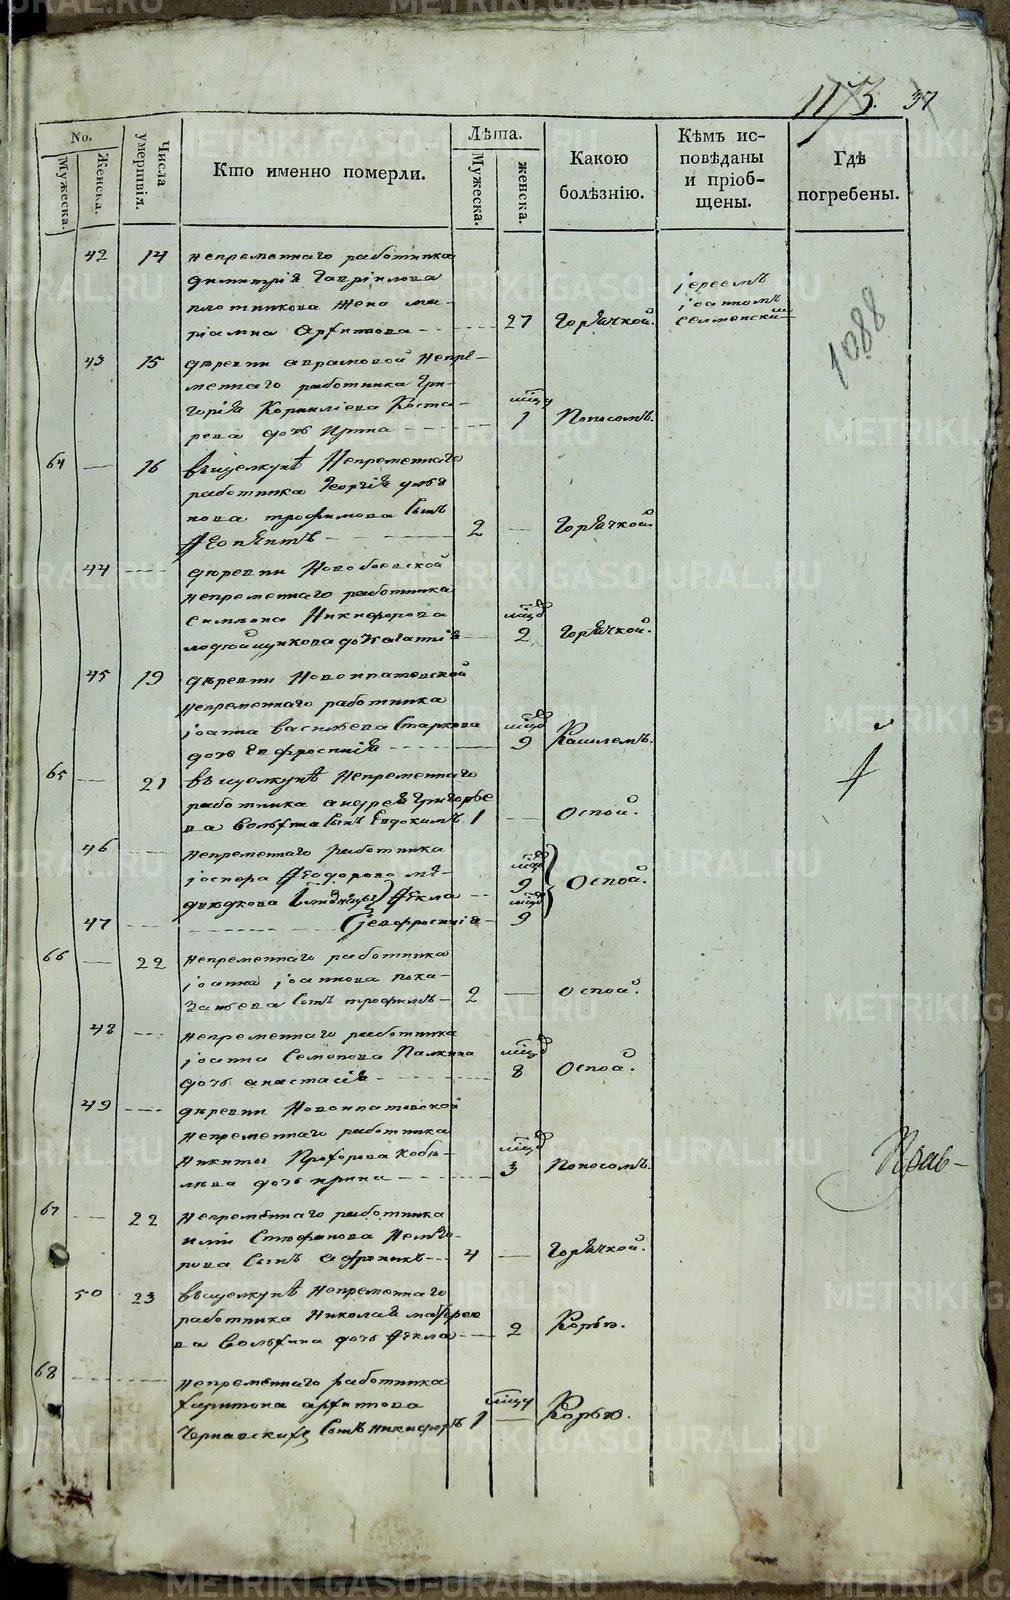 1173. 37
No.
Мужеска.
Женска.
Числа умертвія.
Кто именно померли.
Лѣта.
Мужеска.
женска.
Какою болѣзнію.
Кѣмъ исповѣданы и пріобщены.
Гдѣ погребены.
1088
42 14 непременнаго работника
димитрія Гавріилова
плотникова жена ма-
ріамна Архипова 27 Горячкой.
іереемъ
іоанномъ
43 15 деревни аврамовой Непре-
меннаго работника Гри-
горія Корниліева Коста-
рева дочь Ирина мѣсяц 1 Поносомъ.
64 — 16 въ щелкунѣ Непременнаго
работника Георгія
нова трофимова Сынъ
Леонтій 2 — Горячкой.
44 деревни Новобоевской
непременнаго работника
Симеона Никифорова
дочь агапія 2 Горячкой.
45 19 деревни Новоипатовской
непременнаго работника
іоанна василіева Старкова
дочь Евфросинія 9 Кашлемъ.
65 — 21 въ щелкунѣ Непременнаго
работника андрея Григорье
ва Волхина Сынъ Евдокимъ 1 — Оспой.
46 непременнаго работника
Ѳеодорова ме-
Ѳекла 9 Оспой.
47 Евфросинія 9
66 — 22 непременнаго работника
іоанна іоаннова пока-
Сынъ трофимъ 2 — оспой.
48 непременнаго работника
іоанна Семенова Палкина
дочь анастасія 8 Оспой.
49 деревни Новоипатовской
непременнаго работника
Никиты Прохорова кобы-
лева дочь ирина 3 Поносомъ.
67 — 22 Непременнаго работника
иліи Стефанова
пова Сынъ 4 — Горячкой.
50 23 въ щелкунѣ непременнаго
работника Николая матфее
ва Волхина дочь Ѳекла 2 Корью.
68 непременнаго работника
харитона архипова
Чернавскихъ Сынъ никифоръ 1 — Корью.
METRIKI.GASO-URAL.RU